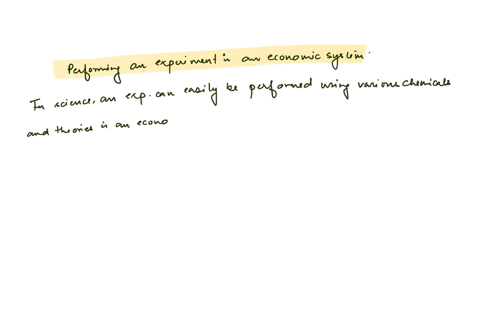 Performing an experiment in an economic system.
In science, an exp. can easily be performed using various chemicals
and theories in an econo